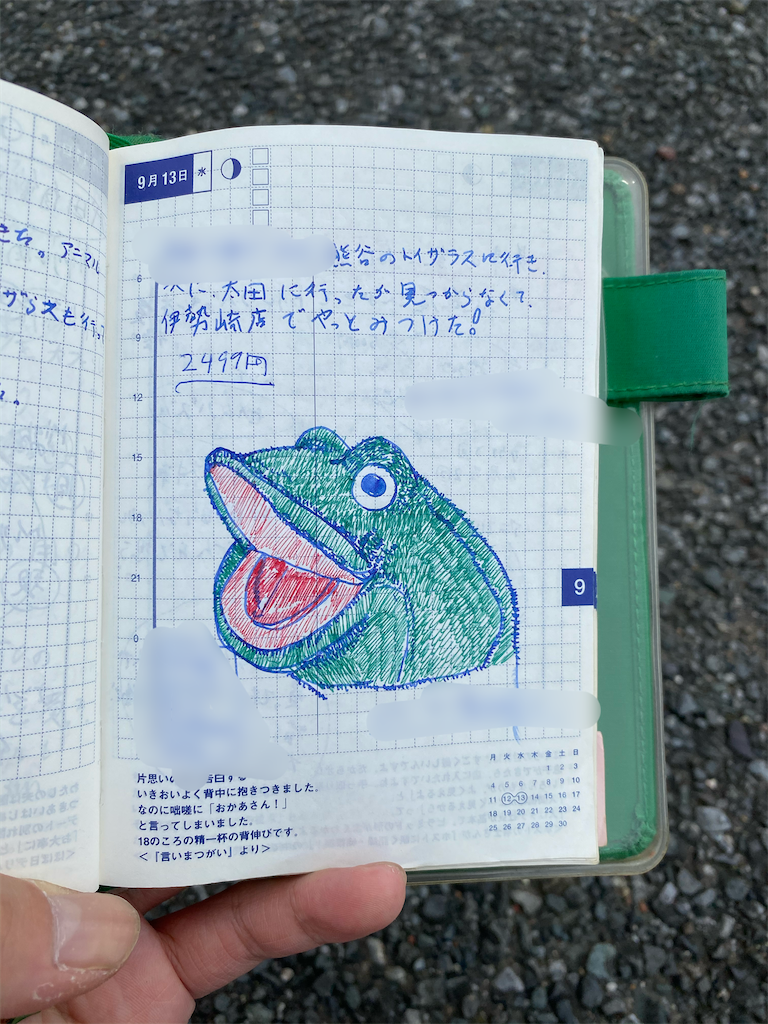 きた。アニマル
ザらスも行っ
9月13日 水
熊谷のトイザラスに行き、
次に、太田に行ったが見つからなくて、
伊勢崎店でやっとみつけた!
2499円
6
9
15
18
21
0
9
片思いの
いきおいよく背中に抱きつきました。
なのに咄嗟に「おかあさん!」
と言ってしまいました。
18のころの精一杯の背伸びです。
<『言いまつがい』より>
月 火 水 木 金 土 日
1 2 3
4 5 6 7 8 9 10
11 12 13 14 15 16 17
18 19 20 21 22 23 24
25 26 27 28 29 30